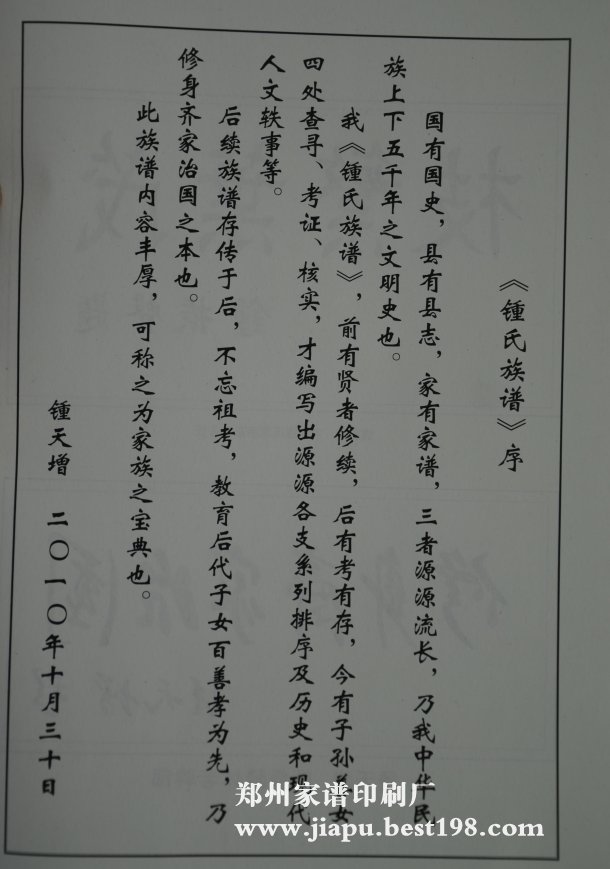 《锺氏族谱》序
国有国史，县有县志，家有家谱，三者源源流长，乃我中华民
族上下五千年之文明史也。
我《锺氏族谱》，前有贤者修续，后有考有存，今有子孙女
四处查寻、考证、核实，才编写出源源各支系列排序及历史和现代
人文轶事等。
后续族谱存传于后，不忘祖考，教育后代子女百善孝为先，乃
修身齐家治国之本也。
此族谱内容丰厚，可称之为家族之宝典也。
锺天增 二〇一〇年十月三十日
郑州家谱印刷厂
www.jiapu.best198.com